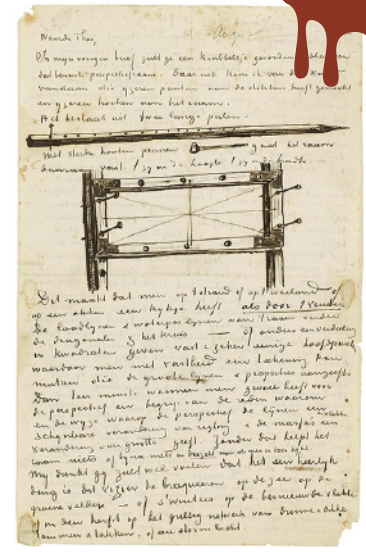 Waarde Theo,
In mijn vorigen brief zult ge een krabbeltje gevonden hebben van
dat bewuste perspectiefraam. Daar net kom ik van den smid
vandaan die ijzeren punten aan de stokken heeft gemaakt
en ijzeren hoeken aan het raam.
Het bestaat uit twee lange palen.
met sterke houten pennen gaat het raam
daaraan vast 't zij in de hoogte 't zij in de breedte
Dit maakt dat men op 't strand of op 't weiland of
op een akker een kijkje heeft als door 't venster
De loodlijnen & waterpas lijnen van 't raam verder
de diagonalen & het kruis — of anders een verdeeling
in kwadraten geven vast & zeker eenige hoofdpunten
waardoor men met vastheid een teekening kan
maken die de groote lijnen & proporties aangeeft.
Dan ten minste wanneer men gevoel heeft voor
de perspectief en begrip van de reden waarom
en de wijze waarop de perspectief de lijnen een
schijnbare verandering van rigting & de massa's een
verandering van grootte geeft. Zonder dat helpt het
raam niets of bijna niets
My dunkt gij zult wel voelen dat het een heerlijk
ding is dit vizier te braqueeren op de zee op de
groene velden — of s'winters op de besneeuwde
of in den herfst op het grillig netwerk van dunne & dikke
stammen & takken, of een storm